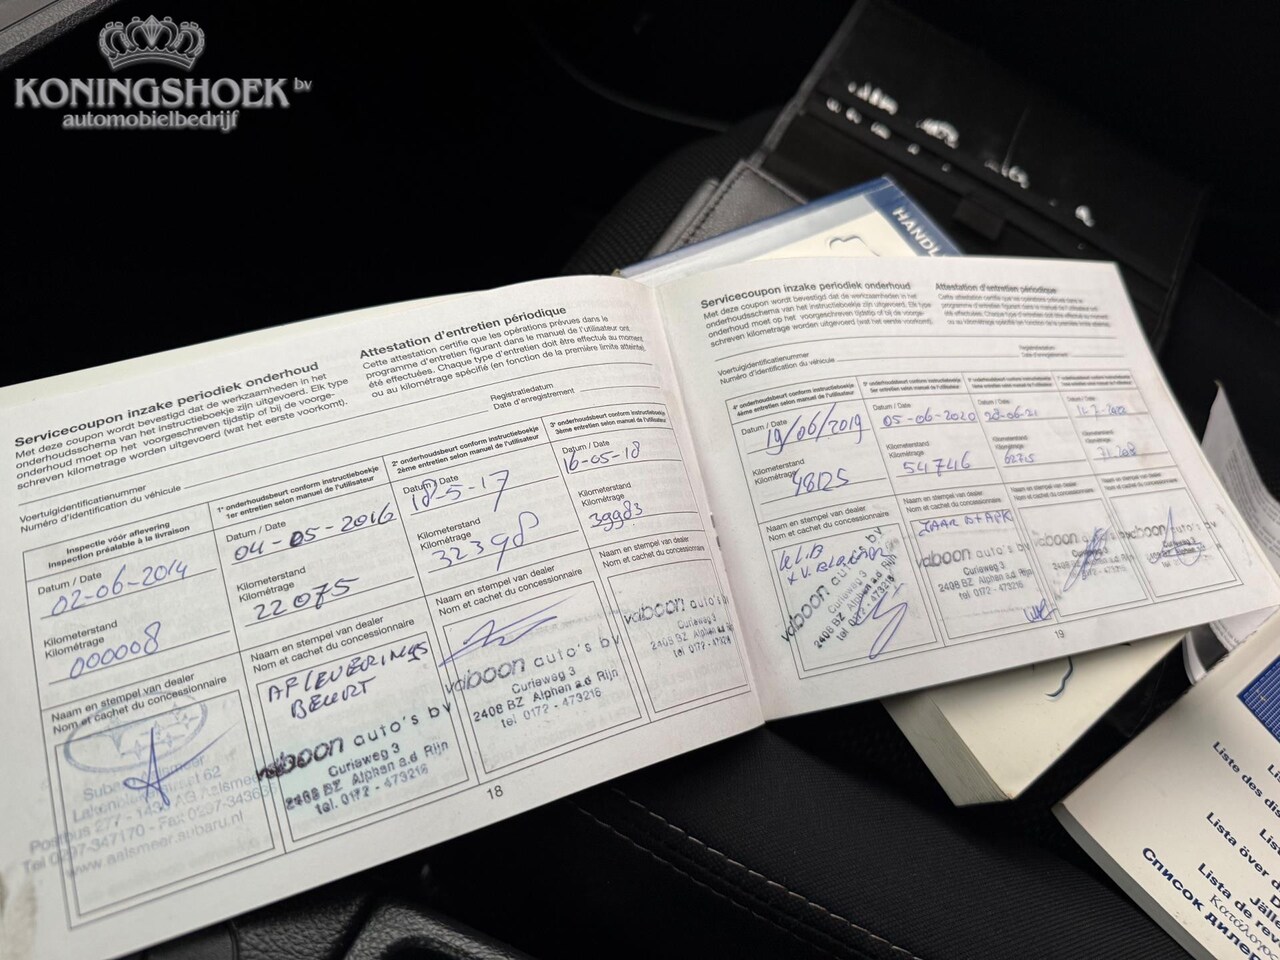 KONINGSHOEK bv
automobielbedrijf
HANDL
Servicecoupon inzake periodiek onderhoud
Met deze coupon wordt bevestigd dat de werkzaamheden in het
onderhoudsschema van het instructieboekje zijn uitgevoerd. Elk type
onderhoud moet op het voorgeschreven tijdstip of bij de voorge-
schreven kilometrage worden uitgevoerd (wat het eerste voorkomt).
Attestation d'entretien périodique
Cette attestation certifie que les opérations prévues dans le
programme d'entretien figurant dans le manuel de l'utilisateur ont
été effectuées. Chaque type d'entretien doit être effectué au moment
ou au kilométrage spécifié (en fonction de la première limite atteinte).
Voertuigidentificatienummer
Numéro d'identification du véhicule
Registratiedatum
Date d'enregistrement
Inspectie vóór aflevering
Inspection préalable à la livraison
Datum / Date
02-06-2014
Kilometerstand
Kilométrage
000008
Naam en stempel van dealer
Nom et cachet du concessionnaire
Aalsmeer
Postbus 277 - 1430 AG Aalsmeer
Tel 0297-347170 - Fax 0297-343636
www.aalsmeer.subaru.nl
1e onderhoudsbeurt conform instructieboekje
1er entretien selon manuel de l'utilisateur
Datum / Date
04-05-2016
Kilometerstand
Kilométrage
22075
Naam en stempel van dealer
Nom et cachet du concessionnaire
AFLEVERINGS
BEURT
vaboon auto's bv
Curieweg 3
2408 BZ Alphen a.d Rijn
tel. 0172 - 473216
2e onderhoudsbeurt conform instructieboekje
2ème entretien selon manuel de l'utilisateur
Datum / Date
18-5-17
Kilometerstand
Kilométrage
32398
Naam en stempel van dealer
Nom et cachet du concessionnaire
vaboon auto's bv
Curieweg 3
2408 BZ Alphen a.d Rijn
tel 0172 - 473216
3e onderhoudsbeurt conform instructieboekje
3ème entretien selon manuel de l'utilisateur
Datum / Date
16-05-18
Kilometerstand
Kilométrage
39983
Naam en stempel van dealer
Nom et cachet du concessionnaire
vaboon auto's bv
Curieweg 3
2408 BZ Alphen a.d Rijn
tel. 0172 - 473216
18
Servicecoupon inzake periodiek onderhoud
Met deze coupon wordt bevestigd dat de werkzaamheden in het
onderhoudsschema van het instructieboekje zijn uitgevoerd. Elk type
onderhoud moet op het voorgeschreven tijdstip of bij de voorge-
schreven kilometrage worden uitgevoerd (wat het eerste voorkomt).
Attestation d'entretien périodique
Cette attestation certifie que les opérations prévues dans le
programme d'entretien figurant dans le manuel de l'utilisateur ont
été effectuées. Chaque type d'entretien doit être effectué au moment
ou au kilométrage spécifié (en fonction de la première limite atteinte).
Voertuigidentificatienummer
Numéro d'identification du véhicule
Registratiedatum
Date d'enregistrement
4e onderhoudsbeurt conform instructieboekje
4ème entretien selon manuel de l'utilisateur
Datum / Date
19/06/2019
Kilometerstand
Kilométrage
48125
Naam en stempel van dealer
Nom et cachet du concessionnaire
vaboon auto's bv
Curieweg 3
2408 BZ Alphen a.d Rijn
tel. 0172 - 473216
onderhoudsbeurt conform instructieboekje
entretien selon manuel de l'utilisateur
Datum / Date
05-06-2020
Kilometerstand
Kilométrage
54746
Naam en stempel van dealer
Nom et cachet du concessionnaire
vaboon auto's bv
Curieweg 3
2408 BZ Alphen a.d Rijn
tel 0172 - 473216
Datum / Date
28-06-21
Kilometerstand
Kilométrage
62715
Naam en stempel van dealer
Nom et cachet du concessionnaire
Datum / Date
Kilometerstand
Kilométrage
71.208
Naam en stempel van dealer
Nom et cachet du concessionnaire
19
Liste des dis
Lista över
Lista de rev
Список дилер